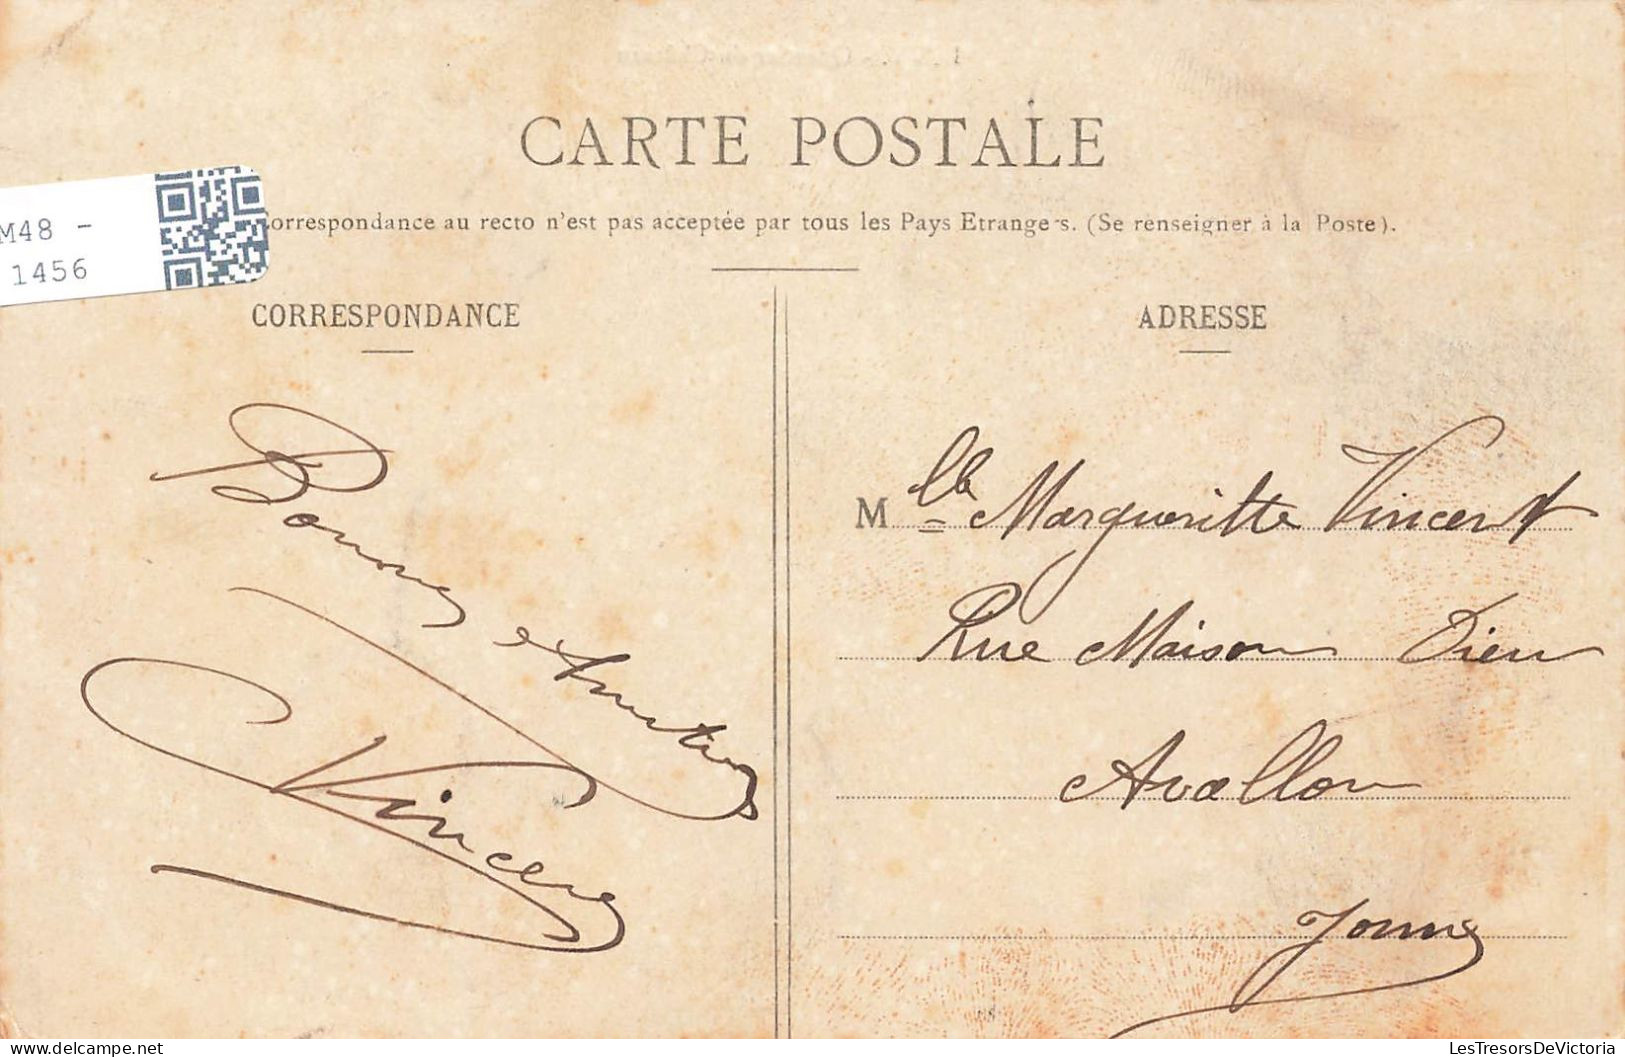 CARTE POSTALE
M48 -
1456
orrespondance au recto n'est pas acceptée par tous les Pays Etrangers. (Se renseigner à la Poste).
CORRESPONDANCE
ADRESSE
Bonnes
Amitiés
Vincent
Mlle Margueritte Vincent
Rue Maison Dieu
Avallon
Yonne
LesTresorsDeVictoria